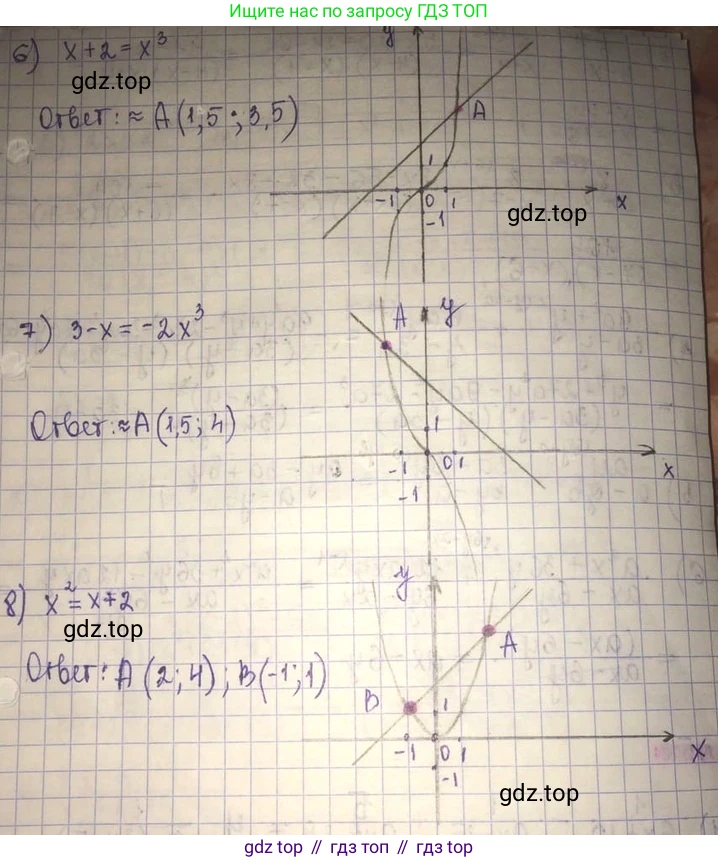 Ищите нас по запросу ГДЗ ТОП
6) x+2=x³
gdz.top
Ответ: ≈ A(1,5; 3,5)
y
A
1
-1 0 1 x
-1
gdz.top
7) 3-x=-2x³
A y
Ответ: ≈A(1,5; 4)
1
-1 0 1 x
-1
8) x²=x+2
gdz.top
y
A
Ответ: A(2; 4); B(-1; 1)
B 1
-1 0 1 x
-1
gdz.top
gdz.top // гдз топ // гдз.top